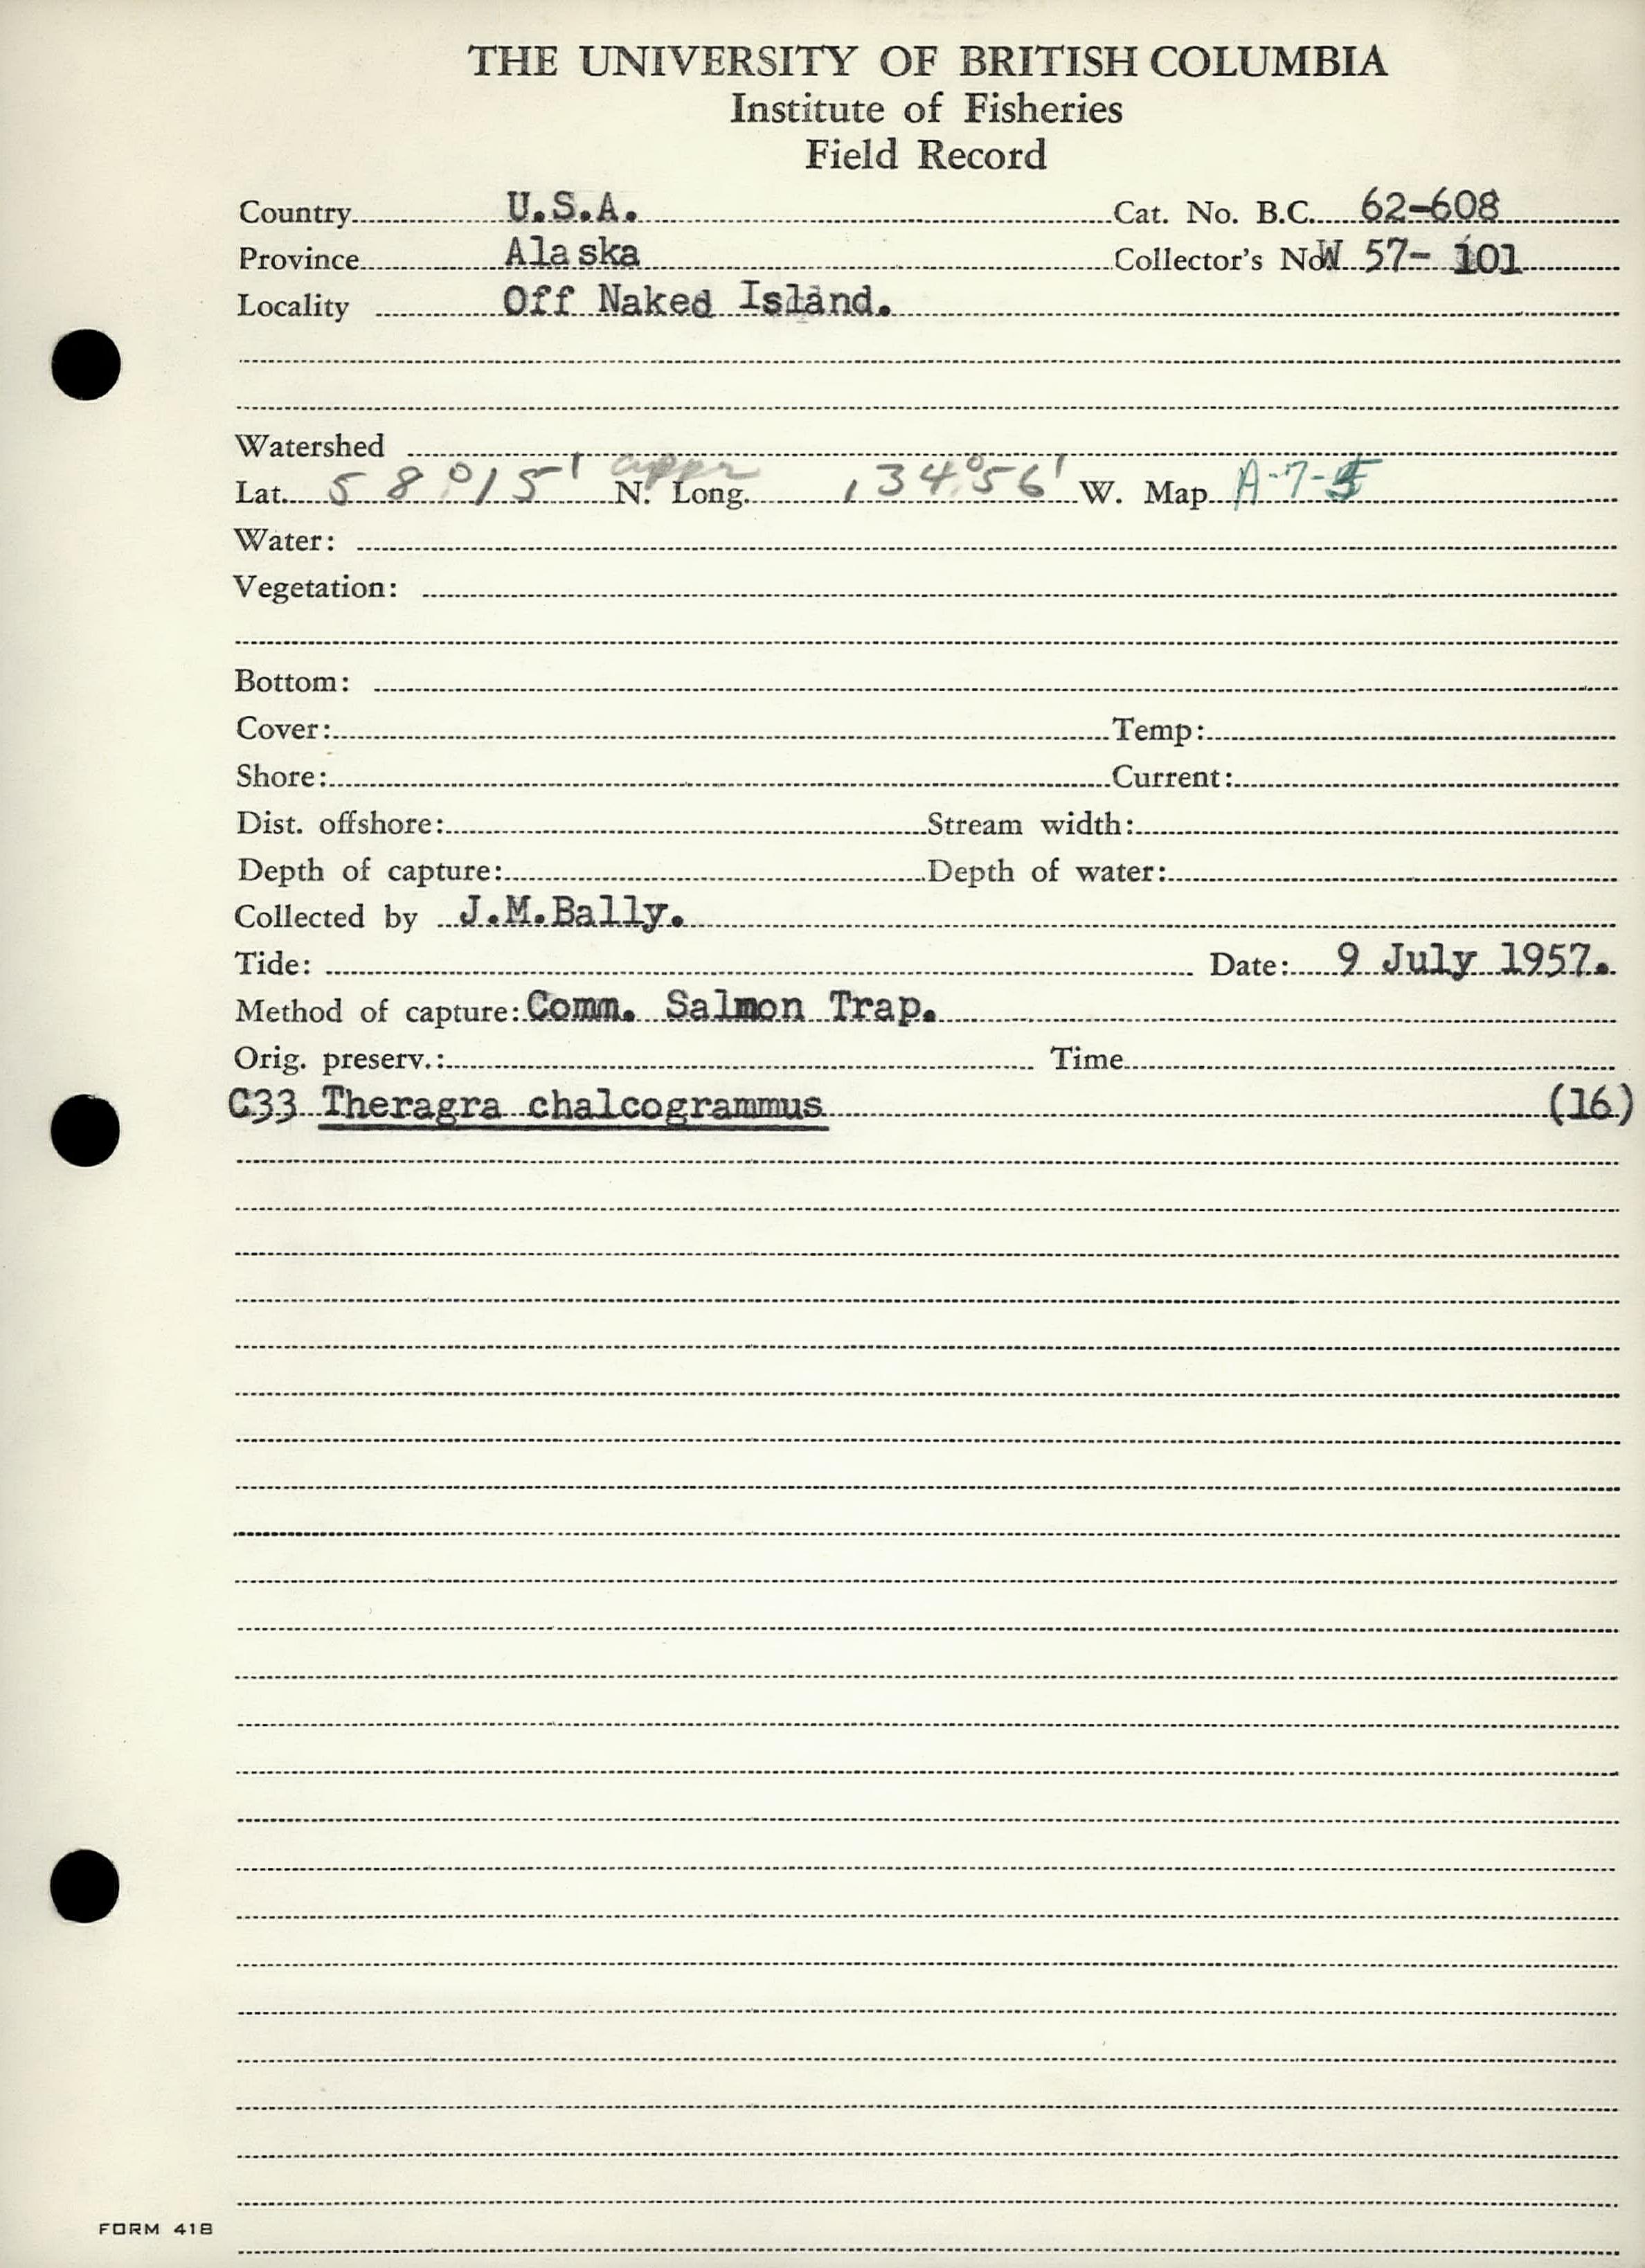 THE UNIVERSITY OF BRITISH COLUMBIA
Institute of Fisheries
Field Record
Country U.S.A. Cat. No. B.C. 62-608
Province Alaska Collector's No. W 57- 101
Locality Off Naked Island.
Watershed
Lat. 58°15' appr N. Long. 134°56' W. Map A-7-5
Water:
Vegetation:
Bottom:
Cover: Temp:
Shore: Current:
Dist. offshore: Stream width:
Depth of capture: Depth of water:
Collected by J.M.Bally.
Tide: Date: 9 July 1957.
Method of capture: Comm. Salmon Trap.
Orig. preserv.: Time
C33 Theragra chalcogrammus (16)
FORM 418